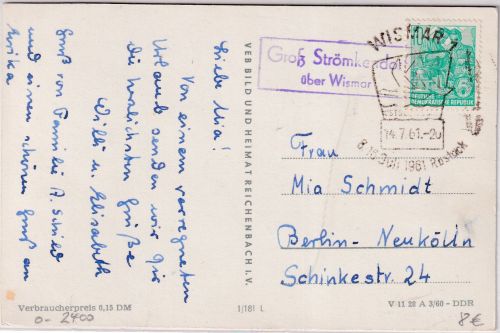 Liebe Mia!
Von einem verregneten
Urlaub senden wir Dir
die herzlichsten Grüße
Willi u. Elisabeth
Gruß von Familie A. Schild
und einen schönen Gruß an
Erika
Verbraucherpreis 0,15 DM
0- 2400
VEB BILD UND HEIMAT REICHENBACH I. V.
1/181 L
Groß Strömkendorf
über Wismar
WISMAR 1
14.7.61.-20
1961 Rostock
DEUTSCHE
DEMOKRATISCHE REPUBLIK
Frau
Mia Schmidt
Berlin-Neukölln
Schinkestr. 24
V 11 28 A 3/60 - DDR
8€